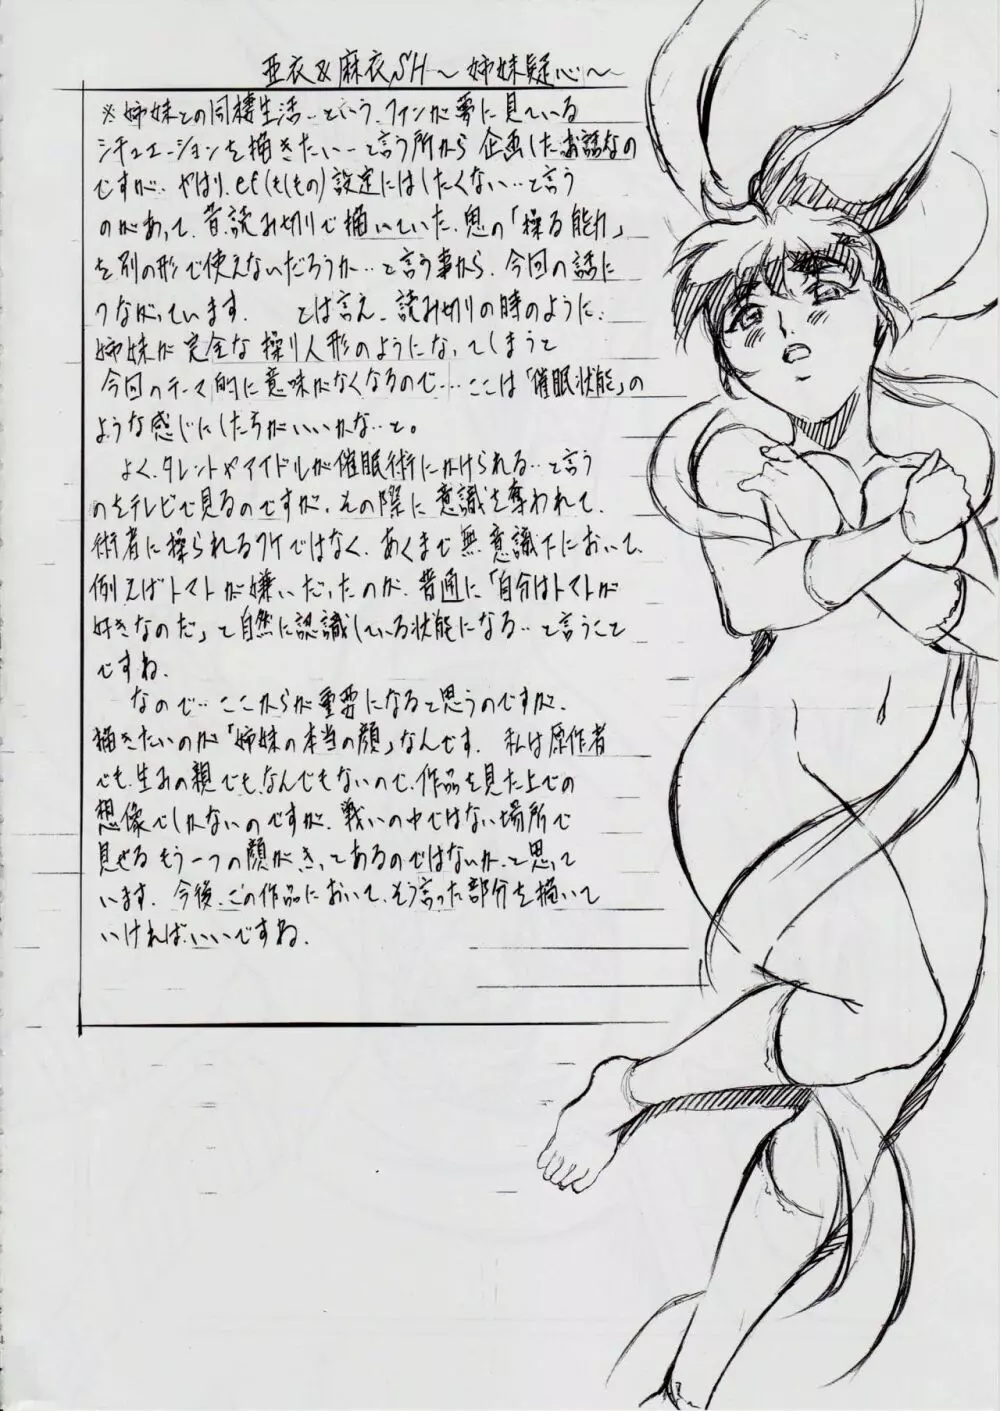 亜衣&麻衣SH〜姉妹疑心〜
※姉妹との同棲生活…という、ファンが夢に見ている
シチュエーションを描きたい…と言う所から企画したお話なの
ですが、やはり、if(もしもの)設定にはしたくない…と言う
のがあって、昔、読み切りで描いていた、鬼の「操る能力」
を別の形で使えないだろうか…と言う事から、今回の話に
つながっています。 とは言え、読み切りの時のように、
姉妹が完全な操り人形のようになってしまうと
今回のテーマ的に意味がなくなるので…ここは「催眠状態」の
ような感じにした方がいいかな…と。
よく、タレントやアイドルが催眠術にかけられる…と言う
のをテレビで見るのですが、その際に意識を奪われて、
術者に操られるワケではなく、あくまで無意識下において、
例えばトマトが嫌いだったのが、普通に「自分はトマトが
好きなのだ」と自然に認識している状態になる…と言うこと
ですね。
なので…ここからが重要になると思うのですが、
描きたいのが「姉妹の本当の顔」なんです。私は原作者
でも、生みの親でも、なんでもないので、作品を見た上での
想像でしかないのですが、戦いの中ではない場所で
見せるもう一つの顔がきっとあるのではないか、と思って
います。今後、この作品において、そう言った部分を描いて
いければ、いいですね。